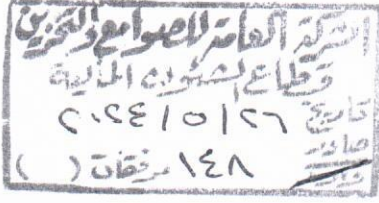 الشركة العامة للصوامع والتخزين
قطاع الشئون المالية
تاريخ ٢٠٢٤/٥/٢٦
صادر
وارد ١٤٨ مرفقات ( )